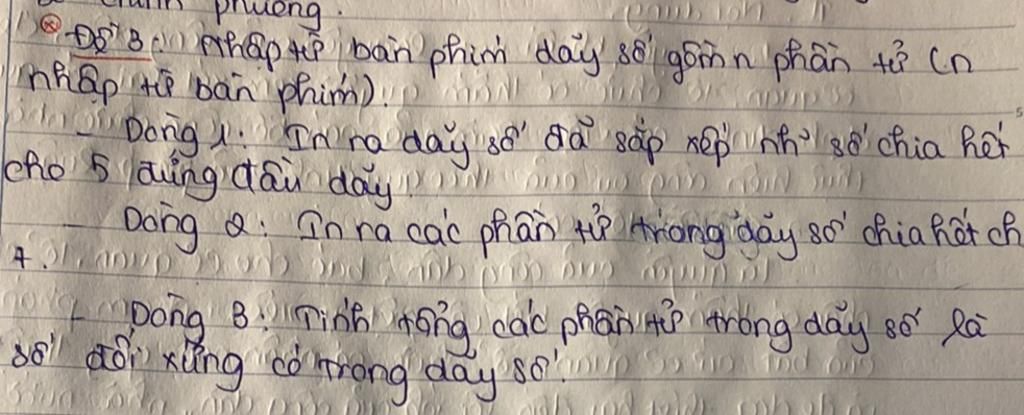 phuong.
Đề 3: Nhập từ bàn phím dãy số gồm n phần tử (n
nhập từ bàn phím).
- Dòng 1: In ra dãy số đã sắp xếp như số chia hết
cho 5 đứng đầu dãy
- Dòng 2: In ra các phần tử trong dãy số chia hết ch
4.
- Dòng 3: Tính tổng các phần tử trong dãy số là
số đối xứng có trong dãy số.